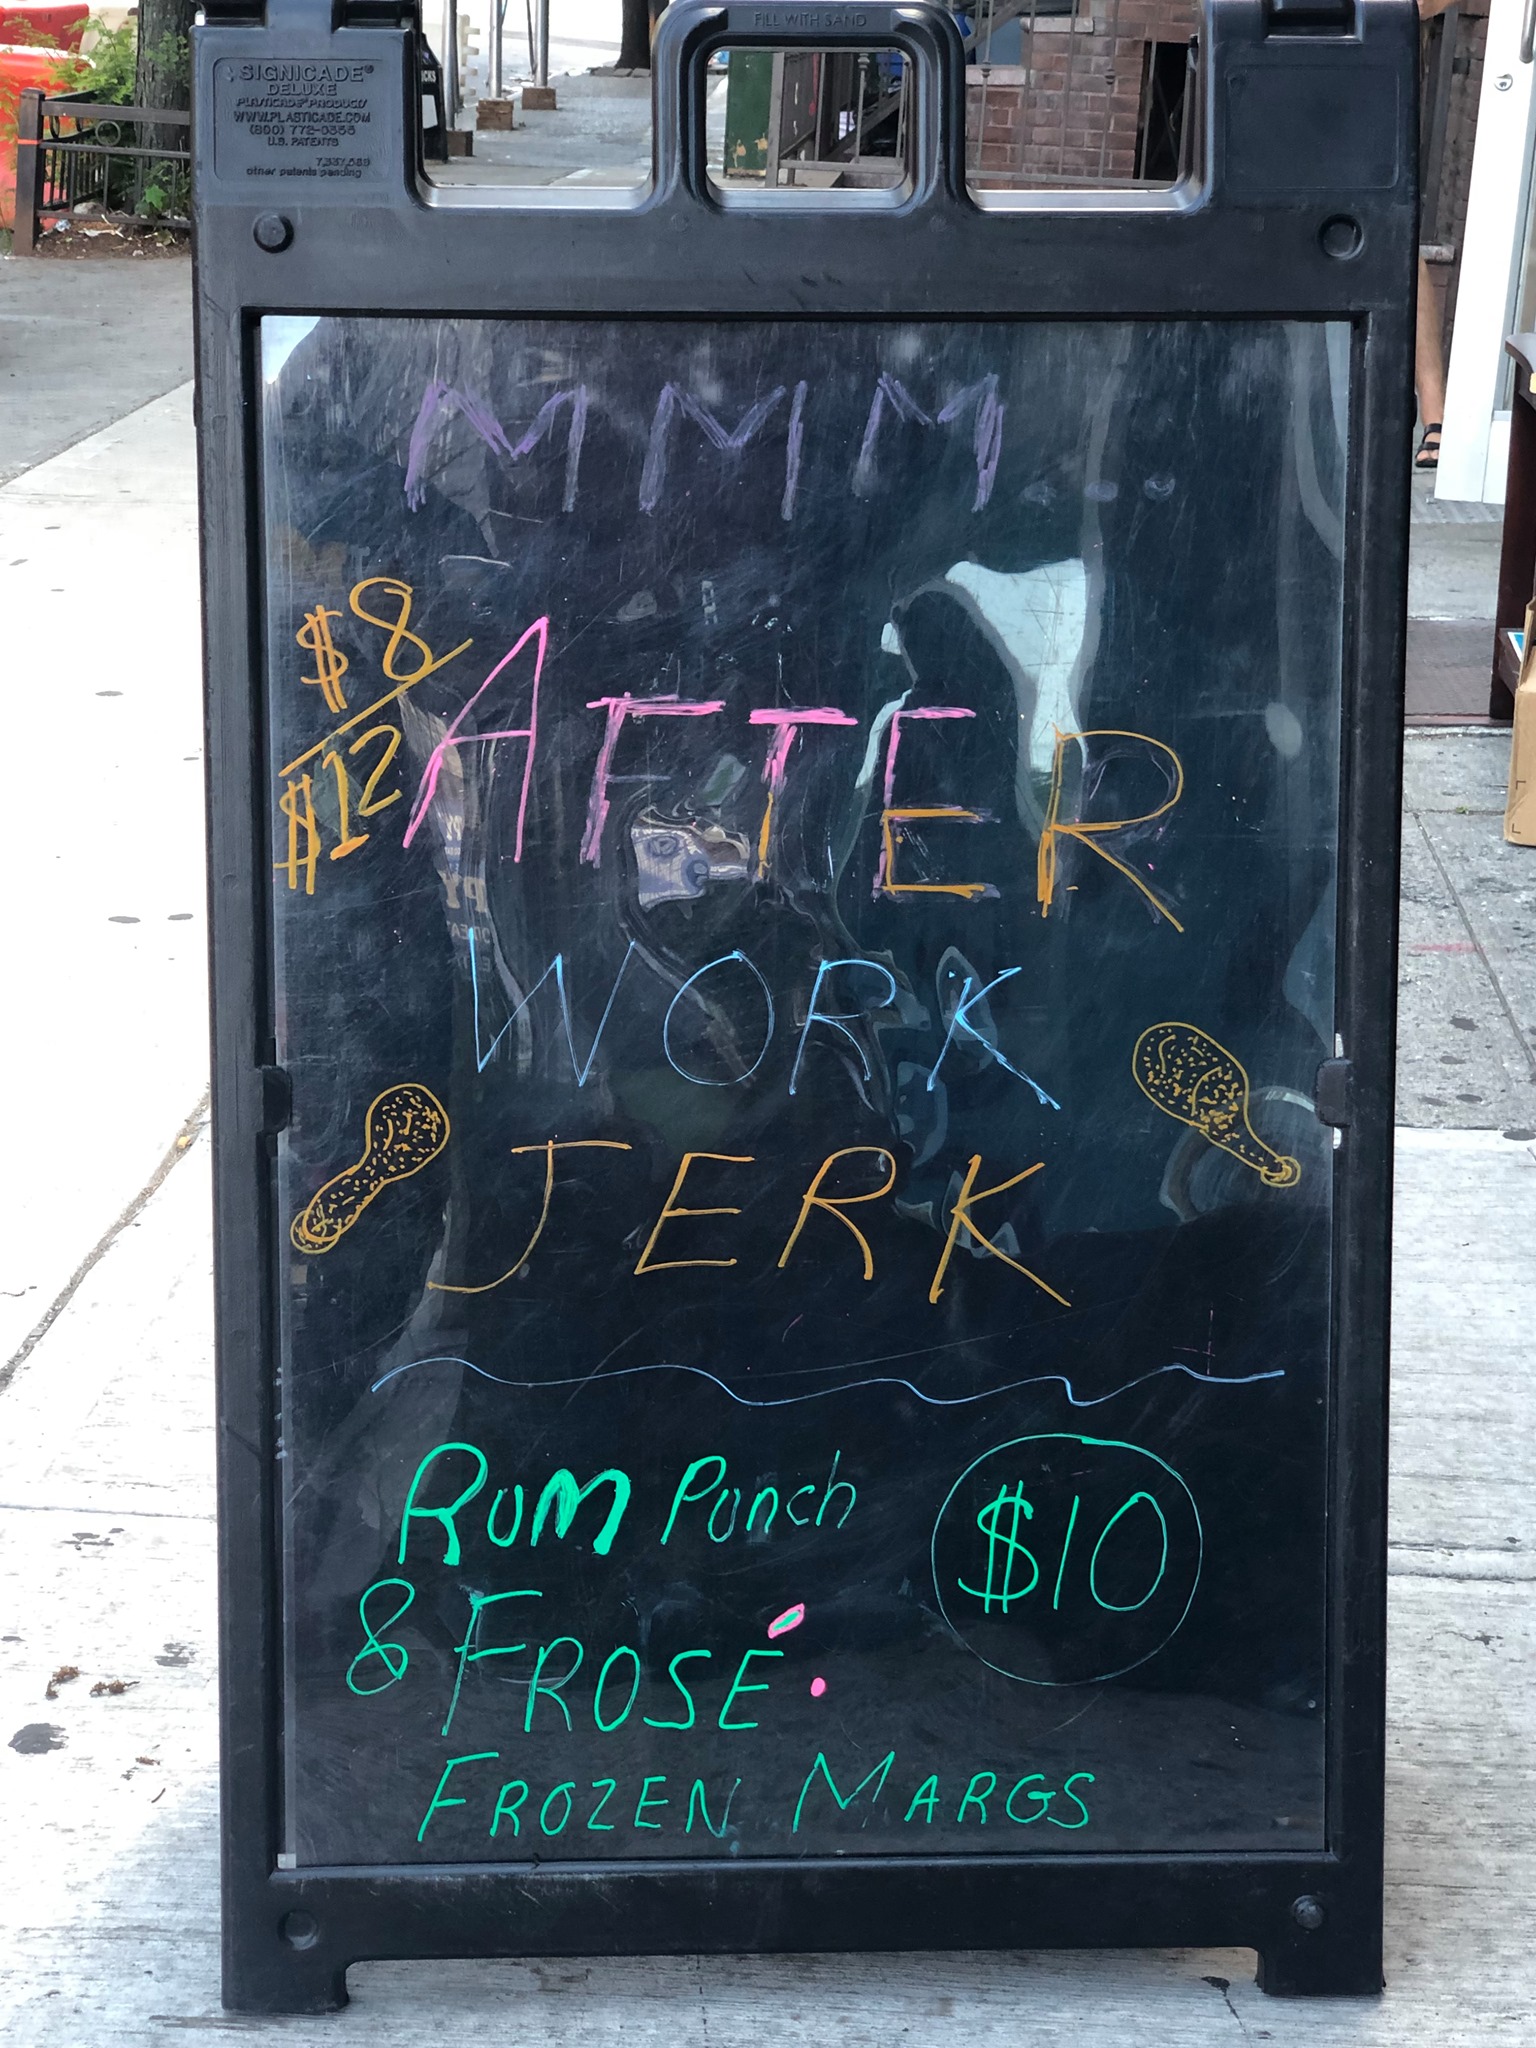 FILL WITH SAND
SIGNICADE®
DELUXE
PLASTICADE® PRODUCTS
WWW.PLASTICADE.COM
(800) 772-0355
U.S. PATENTS
other patents pending
MMM...
$8/
$12
AFTER
WORK
JERK
RUM Punch
& FROSÉ.
$10
FROZEN MARGS